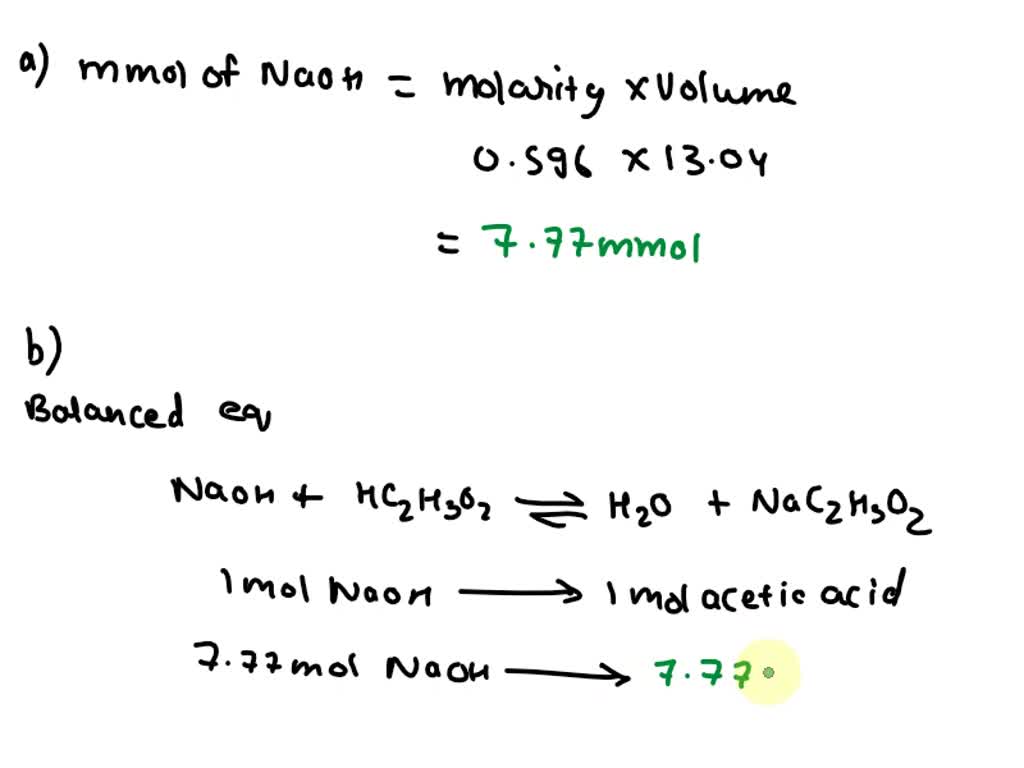 a) mmol of NaOH = molarity x Volume
0.596 x 13.04
= 7.77mmol
b)
Balanced eq
NaOH + HC₂H₃O₂ ⇌ H₂O + NaC₂H₃O₂
1 mol NaOH ⟶ 1 mol acetic acid
7.77 mol NaOH ⟶ 7.77